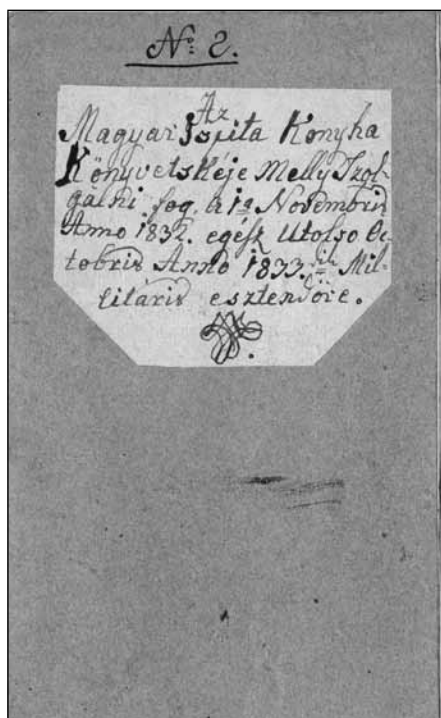 No: 2.
Az
Magyar Ispita Konyha
Könyvetskéje Melly Szol-
gálni fog a 1a Novembris
Anno 1832. egész Utolso Oc-
tobris Anno 1833. ik Mil-
litáris esztendőre.